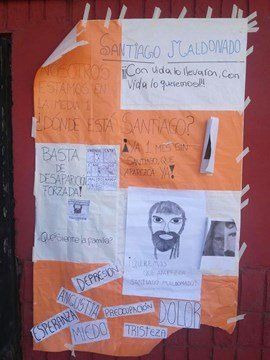 SANTIAGO MALDONADO
¡¡Con vida lo llevaron, con
vida lo queremos!!!
NOSOTROS
ESTAMOS EN
LA MEDIA 1
¿DONDE ESTÁ SANTIAGO?
¡YA 1 MES SIN
SANTIAGO, QUE
APAREZCA YA!
BASTA
DE
DESAPARICIÓN
FORZADA!
¿Qué siente la familia?
¡QUEREMOS
QUE APAREZCA
SANTIAGO MALDONADO!
DEPRESIÓN
ANGUSTIA
PREOCUPACIÓN
DOLOR
ESPERANZA
MIEDO
TRISTEZA